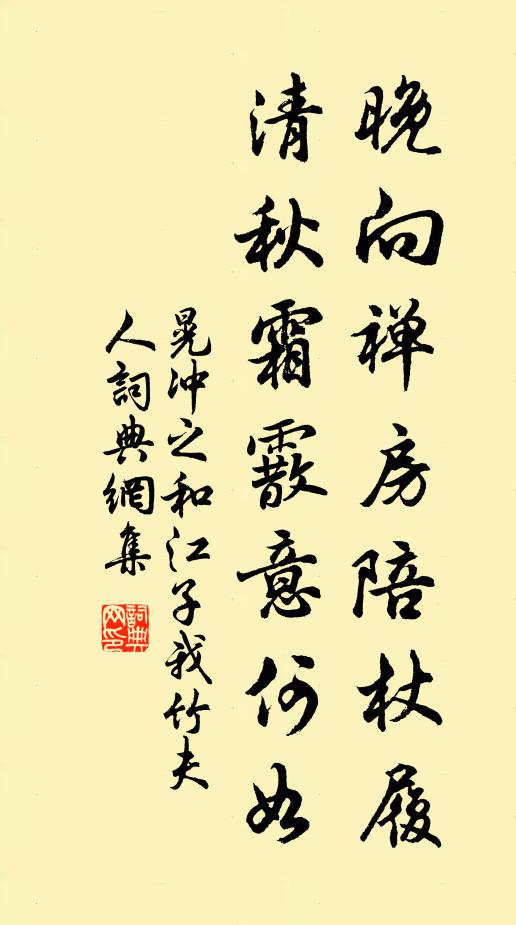 晚向禅房陪杖履
清秋霜霰意何如
晁冲之和江子我竹夫
人詞典網集
詞典
网印